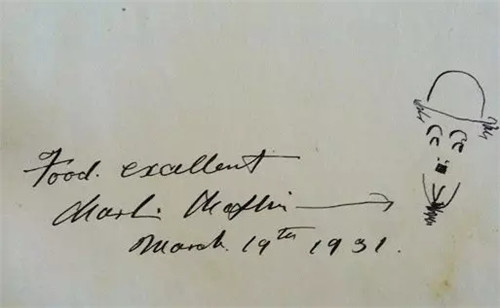 Food. excellent
Charlie Chaplin
March 19th 1931.